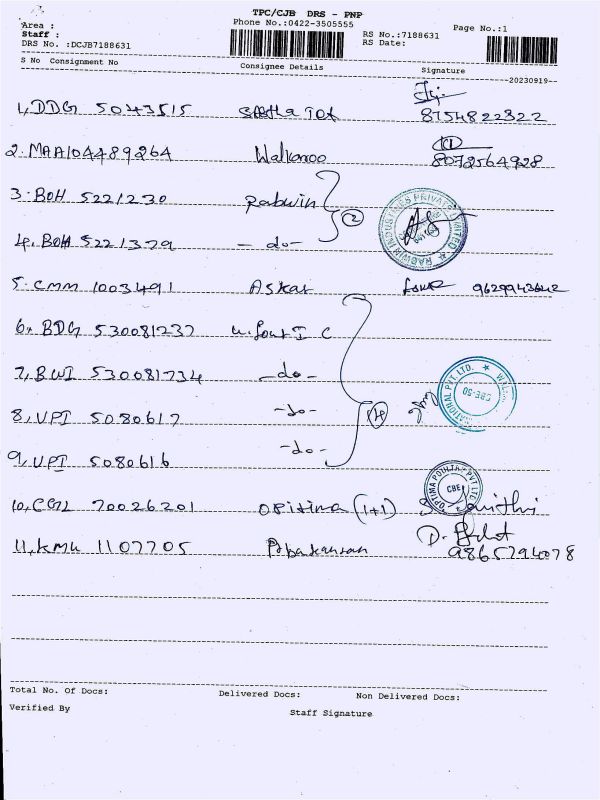 TPC/CJB DRS - PNP
Area :
Phone No.:0422-3505555
Page No.:1
Staff :
RS No.:7188631
DRS No. :DCJB7188631
RS Date:
S No Consignment No Consignee Details Signature
20230919
1, DDG 5043515 8754822322
2. MAA104489264 Walkaroo 8072564928
3. BOH 5221230 Rabwin
4. BOH 5221379 - do - 2
RABWIN INDUSTRIES PRIVATE LIMITED
5. CMM 1003491 Askar 9629943642
6, BDG 530081237 I C
7, BWI 530081734 - do -
8, UPI 5080617 - do - 4
NATIONAL PVT LTD.
CBE-50
9, UPI 5080616 - do -
OPTIMA PVT LTD
CBE
10, CGL 70026201 (1+1)
11, KMU 1107705 9865794078
Total No. Of Docs: Delivered Docs: Non Delivered Docs:
Verified By
Staff Signature